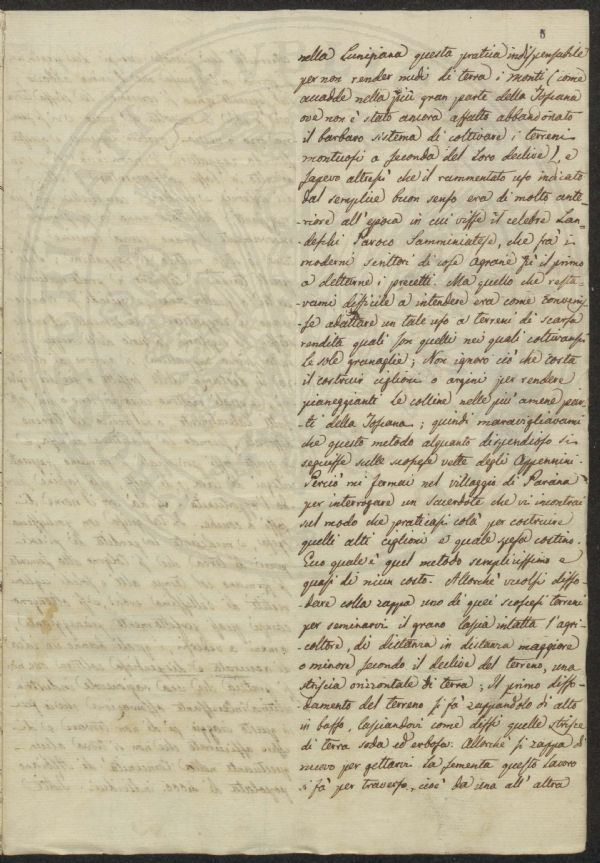 8
nella Lunigiana questa pratica indispensabile
per non render nudi di terra i monti (come
accadde nella più gran parte della Toscana
ove non è stato ancora affatto abbandonato
il barbaro sistema di coltivare i terreni
montuosi a seconda del loro declive), e
sapevo altresì che il rammentato uso indicato
dal semplice buon senso era di molto ante-
-riore all'epoca in cui visse il celebre Lan-
deschi Paroco Samminiatese, che frà i
moderni scrittori di cose Agrarie fù il primo
a dettarne i precetti. Ma quello che resta-
vami difficile a intendere era come convenis-
se adattare un tale uso a terreni di scarsa
rendita quali son quelli nei quali coltivansi
le sole granaglie; Non ignoro ciò che costa
il costruir ciglioni o argini per rendere
pianeggianti le colline nelle più amene par-
ti della Toscana; quindi maravigliavami
che questo metodo alquanto dispendioso si
seguisse sulle scoscese vette degli Appennini.
Perciò mi fermai nel villaggio di Parana
per interrogare un sacerdote che vi incontrai
sul modo che praticasi colà per costruire
quelli alti ciglioni e quale spesa costino.
Ecco quale è quel metodo semplicissimo e
quasi di niun costo. Allorchè vuolsi disso-
dare colla zappa uno di quei scoscesi terreni
per seminarvi il grano lascia intatta l'agri-
coltore, di distanza in distanza maggiore
o minore secondo il declive del terreno, una
striscia orizontale di terra; Il primo disso-
damento del terreno si fà zappandolo di alto
in basso, lasciandovi come dissi quelle strisce
di terra soda ed erbosa. Allorchè si zappa di
nuovo per gettarvi la sementa questo lavoro
si fà per traverso, cioè da una all'altra